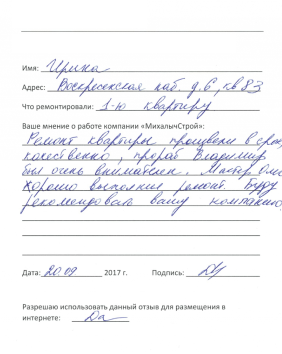 Имя: Ирина
Адрес: Воскресенская наб. д.6, кв 83
Что ремонтировали: 1-ю квартиру
Ваше мнение о работе компании «МихалычСтрой»:
Ремонт квартиры произвели в срок,
качественно, прораб Владимир
был очень внимателен. Мастер Олег
хорошо выполнил ремонт. Буду
рекомендовать вашу компанию.
Дата: 20.09 2017 г. Подпись:
Разрешаю использовать данный отзыв для размещения в
интернете: Да